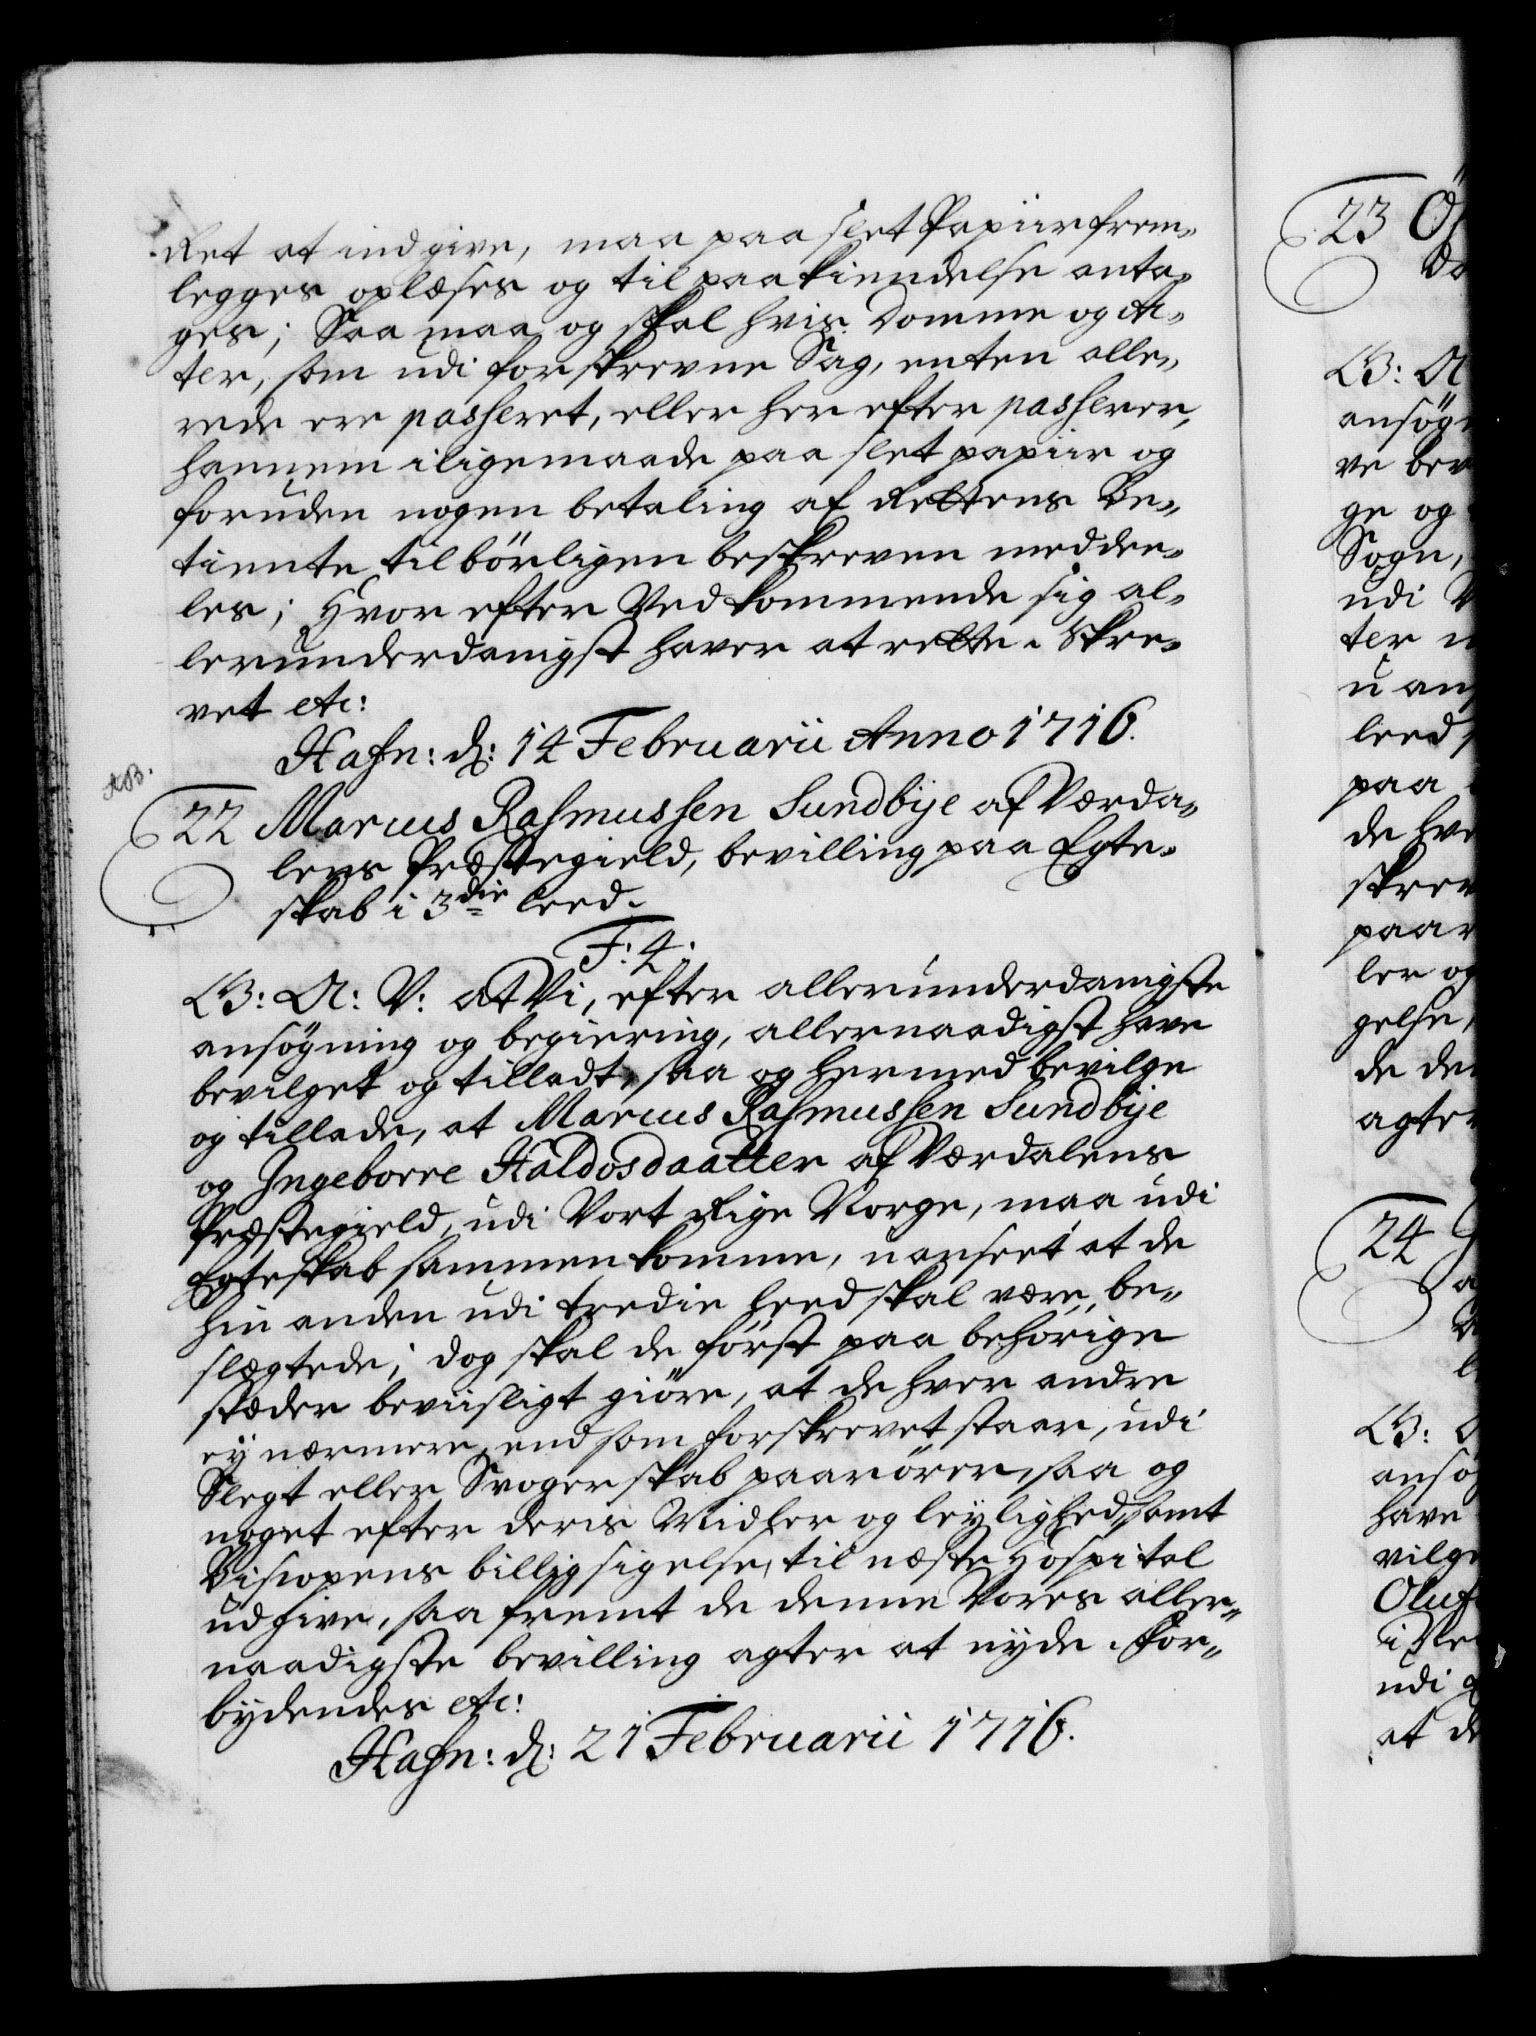 Ret at indgive, maa paa slet Papiir frem-
legges oplæses og til paakiendelse anta-
ges; Saa maa og skal hvis Domme og Ac-
ter, som udi forskrevne Sag, enten alle-
rede ere passeret, eller her efter passerer,
hannem iligemaade paa slet papiir og
foruden nogen betaling af Rettens Be-
tiente tilbörligen beskreven meddee-
les; Hvor efter Vedkommende sig al-
lerunderdanigst haver at rette. Skre-
vet etc:
Hafn: d: 14 Februarii Anno 1716.
22 Marcus Rasmussen Sundbye af Værda-
lens Præstegield, bevilling paa Egte-
skab i 3die leed.
F: 4.
B: A: V: at Vi, efter allerunderdanigste
ansögning og begiering, allernaadigst have
bevilget og tilladt, saa og hermed bevilge
og tillade, at Marcus Rasmussen Sundbye
og Ingeborre Haldosdaatter af Værdalens
Præstegield, udi Vort Rige Norge, maa udi
Egteskab sammenkomme, uanseet at de
hin anden udi tredie leed skal være be-
slægtede; dog skal de först paa behörige
stæder beviisligt giöre, at de hver andre
ey nærmere, end som forskrevet staar, udi
Slegt eller Svogerskab paarörer, saa og
noget efter deris Midler og leylighed, samt
Biscopens billigsigelse, til næste Hospital
udgive, saa fremt de denne Vores aller-
naadigste bevilling agter at nyde. For-
bydendes etc:
Hafn: d: 21 Februarii 1716.
23
B: A
ansög
ve bev
ge og
Sogn,
udi V
ter
u an
leed
paa
de hve
skrev
paar
ler og
gelse,
de de
agter
24
B:
ansö
have
vilge
Oluf
udi
at de